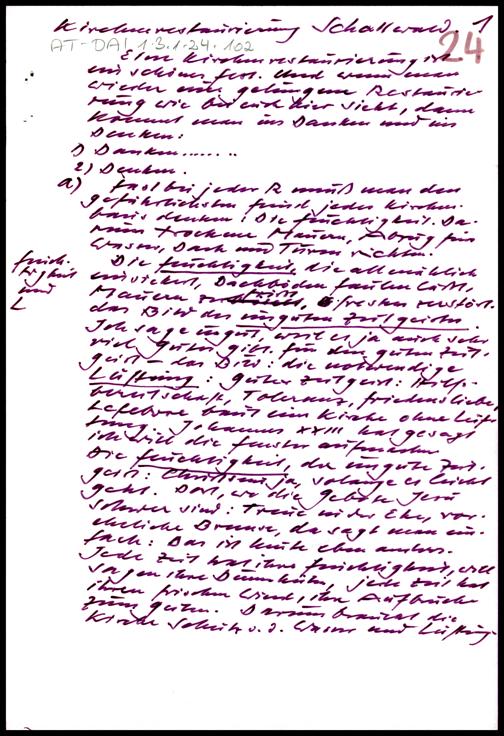 Kirchenrestaurierung Schallwald 1
AT-DAI 1.3.1.24.102
24
Eine Kirchenrestaurierung ist
ein schönes fest. Und wenn man
wieder eine gelungene Restaurie-
rung wie bei euch hier sieht, dann
kommt man ins Danken und ins
Denken:
1) Danken.........
2) Denken.
a) fast bei jeder R muß man den
gefährlichsten feind jedes Kirchen-
baus denken: Die feuchtigkeit. Da-
rum trockene Mauern, Abzug für
Wasser, Dach und Türen richten.
Die feuchtigkeit, die allmählich
einsickert, Dachböden faulen läßt,
Mauern, fresken zerstört.
das Bild des unguten Zeitgeistes.
feuch-
tigkeit
und
L
Ich sage ungut, weil es ja auch sehr
viel Gutes gibt. für den guten Zeit-
geist – das Bild: die notwendige
Lüftung: Guter Zeitgeist: Hilfs-
bereitschaft, Toleranz, friedensliebe,
Lefebvre baut eine Kirche ohne Lüf-
tung. Johannes XXIII hat gesagt
ich will die fenster aufmachen
Die feuchtigkeit, der ungute Zeit-
geist: Christsein ja, solange es leicht
geht. Dort, wo die Gebote Jesu
schwer sind: Treue in der Ehe, vor-
eheliche Bremse, da sagt man ein-
fach: Das ist heute eben anders.
Jede Zeit hat ihre feuchtigkeit, will
sagen ihre Dummheiten, jede Zeit hat
ihren frischen Wind, ihre Aufbrüche
zum guten. Darum braucht die
Kirche Schutz v. d. Wasser und Lüftung.